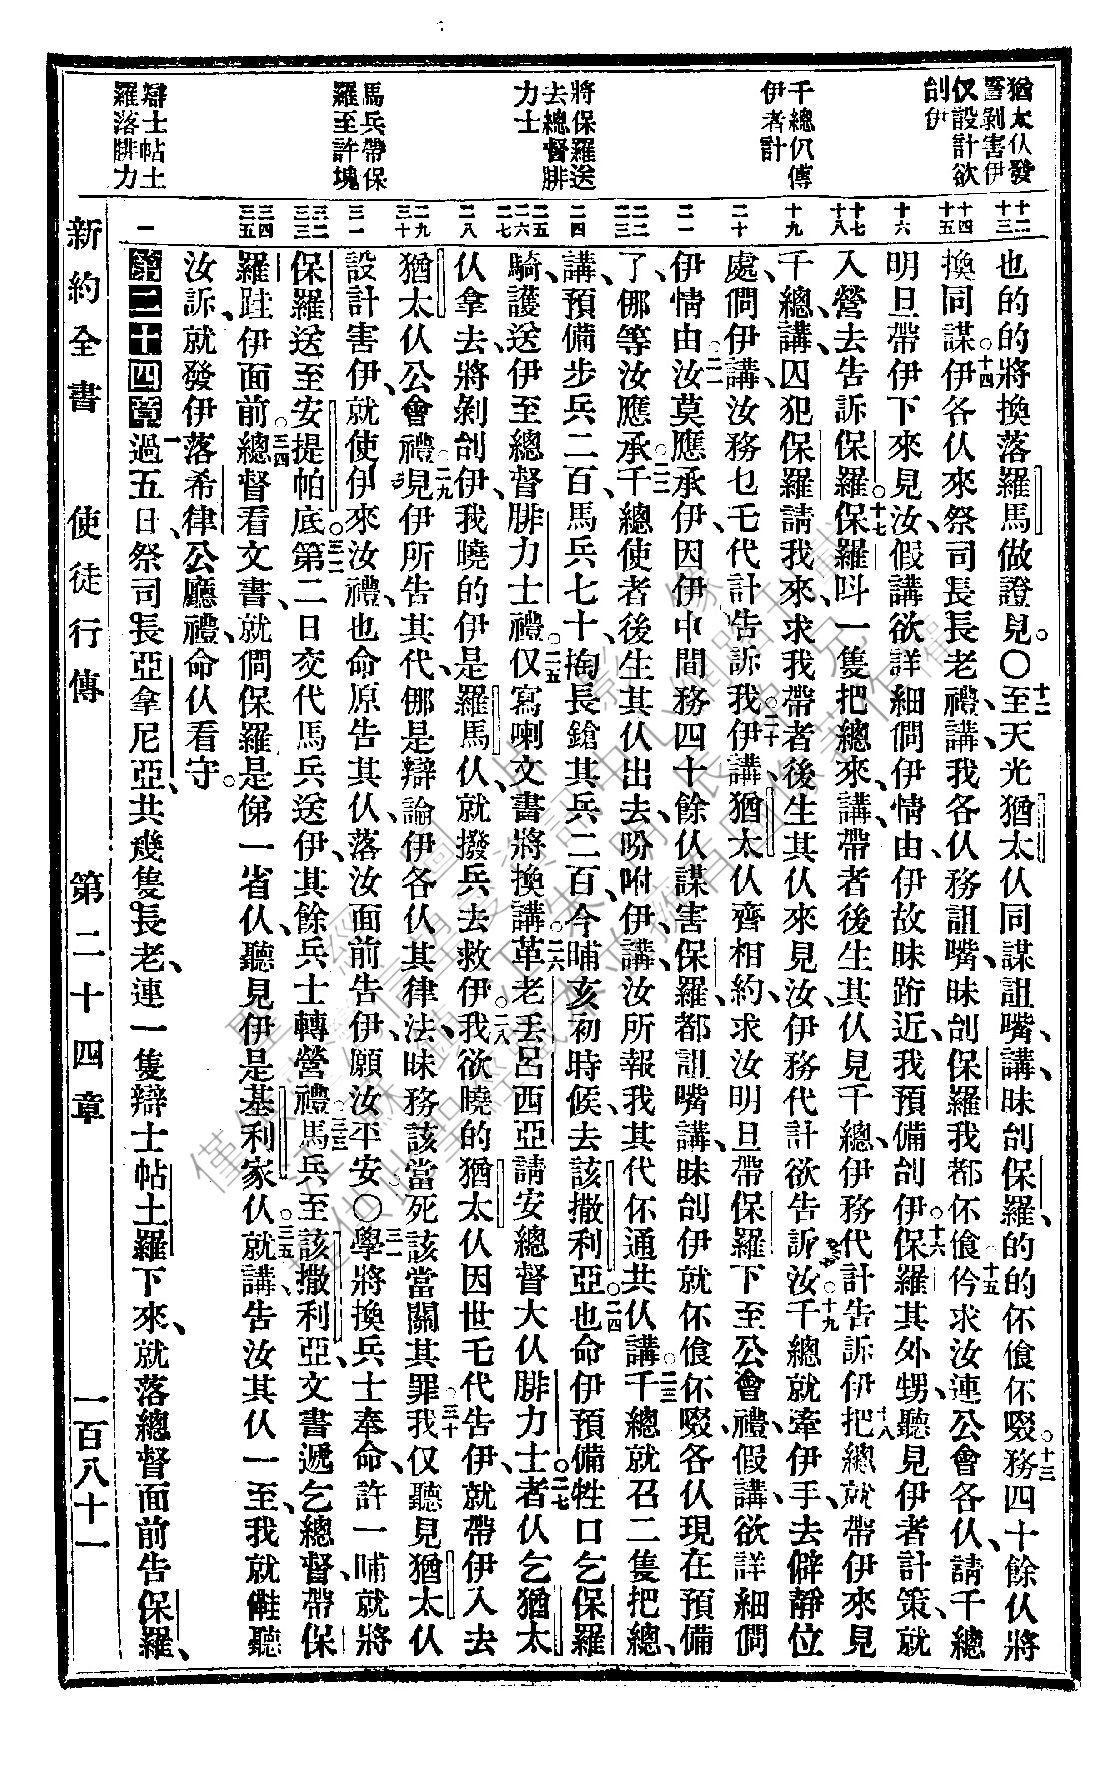 猶太仫發
誓剝害伊
仅設計欲
刣伊
千總仉傳
伊者計
將保羅送
去總督腓
力士
馬兵帶保
羅至許塊
辯士帖土
羅落腓力
十二
十三
十四
十五
十六
十七
十八
十九
二十
二一
二二
二三
二四
二五
二六
二七
二八
二九
三十
三一
三二
三三
三四
三五
一
也的的將換落羅馬做證見。〇至天光猶太仫同謀詛嘴、講昧刣保羅、的的伓飡伓啜。務四十餘仫將
換同謀。伊各仫來祭司長長老禮、講、我各仫務詛嘴、昧刣保羅、我都伓飡。伶求汝連公會各仫、請千總
明旦帶伊下來見汝、假講欲詳細僩伊情由、伊故昧跨近、我預備刣伊。保羅其外甥、聽見伊者計策、就
入營去告訴保羅。保羅呌一隻把總來、講、帶者後生其仫見千總、伊務代計告訴伊。把總就帶伊來見
千總、講、囚犯保羅請我來、求我帶者後生其仫來見汝、伊務代計欲告訴汝。千總就牽伊手、去僻靜位
處、僩伊、講、汝務乜乇代計告訴我。伊講、猶太仫齊相約、求汝明旦帶保羅下至公會禮、假講、欲詳細僩
伊情由。汝莫應承伊、因伊中間務四十餘仫謀害保羅、都詛嘴、講、昧刣伊就伓飡伓啜、各仫現在預備
了、㑚等汝應承。千總使者後生其仫出去、吩咐伊、講、汝所報我其代伓通共仫講。千總就召二隻把總、
講、預備步兵二百、馬兵七十、掏長鎗其兵二百、今晡亥初時候、去該撒利亞。也命伊預備牲口、乞保羅
騎、護送伊至總督腓力士禮。仅寫喇文書將換講、革老丟呂西亞請安總督大仫腓力士。者仫乞猶太
仫拿去、將剝刣伊、我曉的伊是羅馬仫、就撥兵去救伊。我欲曉的猶太仫因世乇代告伊、就帶伊入去
猶太仫公會禮。見伊所告其代、㑚是辯論伊各仫其律法、昧務該當死該當關其罪。我仅聽見猶太仫
設計害伊、就使伊來汝禮、也命原告其仫落汝面前告伊、願汝平安。〇學將換兵士奉命、許一晡就將
保羅送至安提帕底。第二日交代馬兵送伊、其餘兵士轉營禮。馬兵至該撒利亞、文書遞乞總督、帶保
羅跬伊面前。總督看文書、就僩保羅是俤一省仫、聽見伊是基利家仫。就講、告汝其仫一至、我就儺聽
汝訴、就發伊落希律公廳禮、命仫看守。
第二十四章 過五日、祭司長亞拿尼亞、共幾隻長老、連一隻辯士帖土羅下來、就落總督面前告保羅、
新約全書 使徒行傳 第二十四章 一百八十一